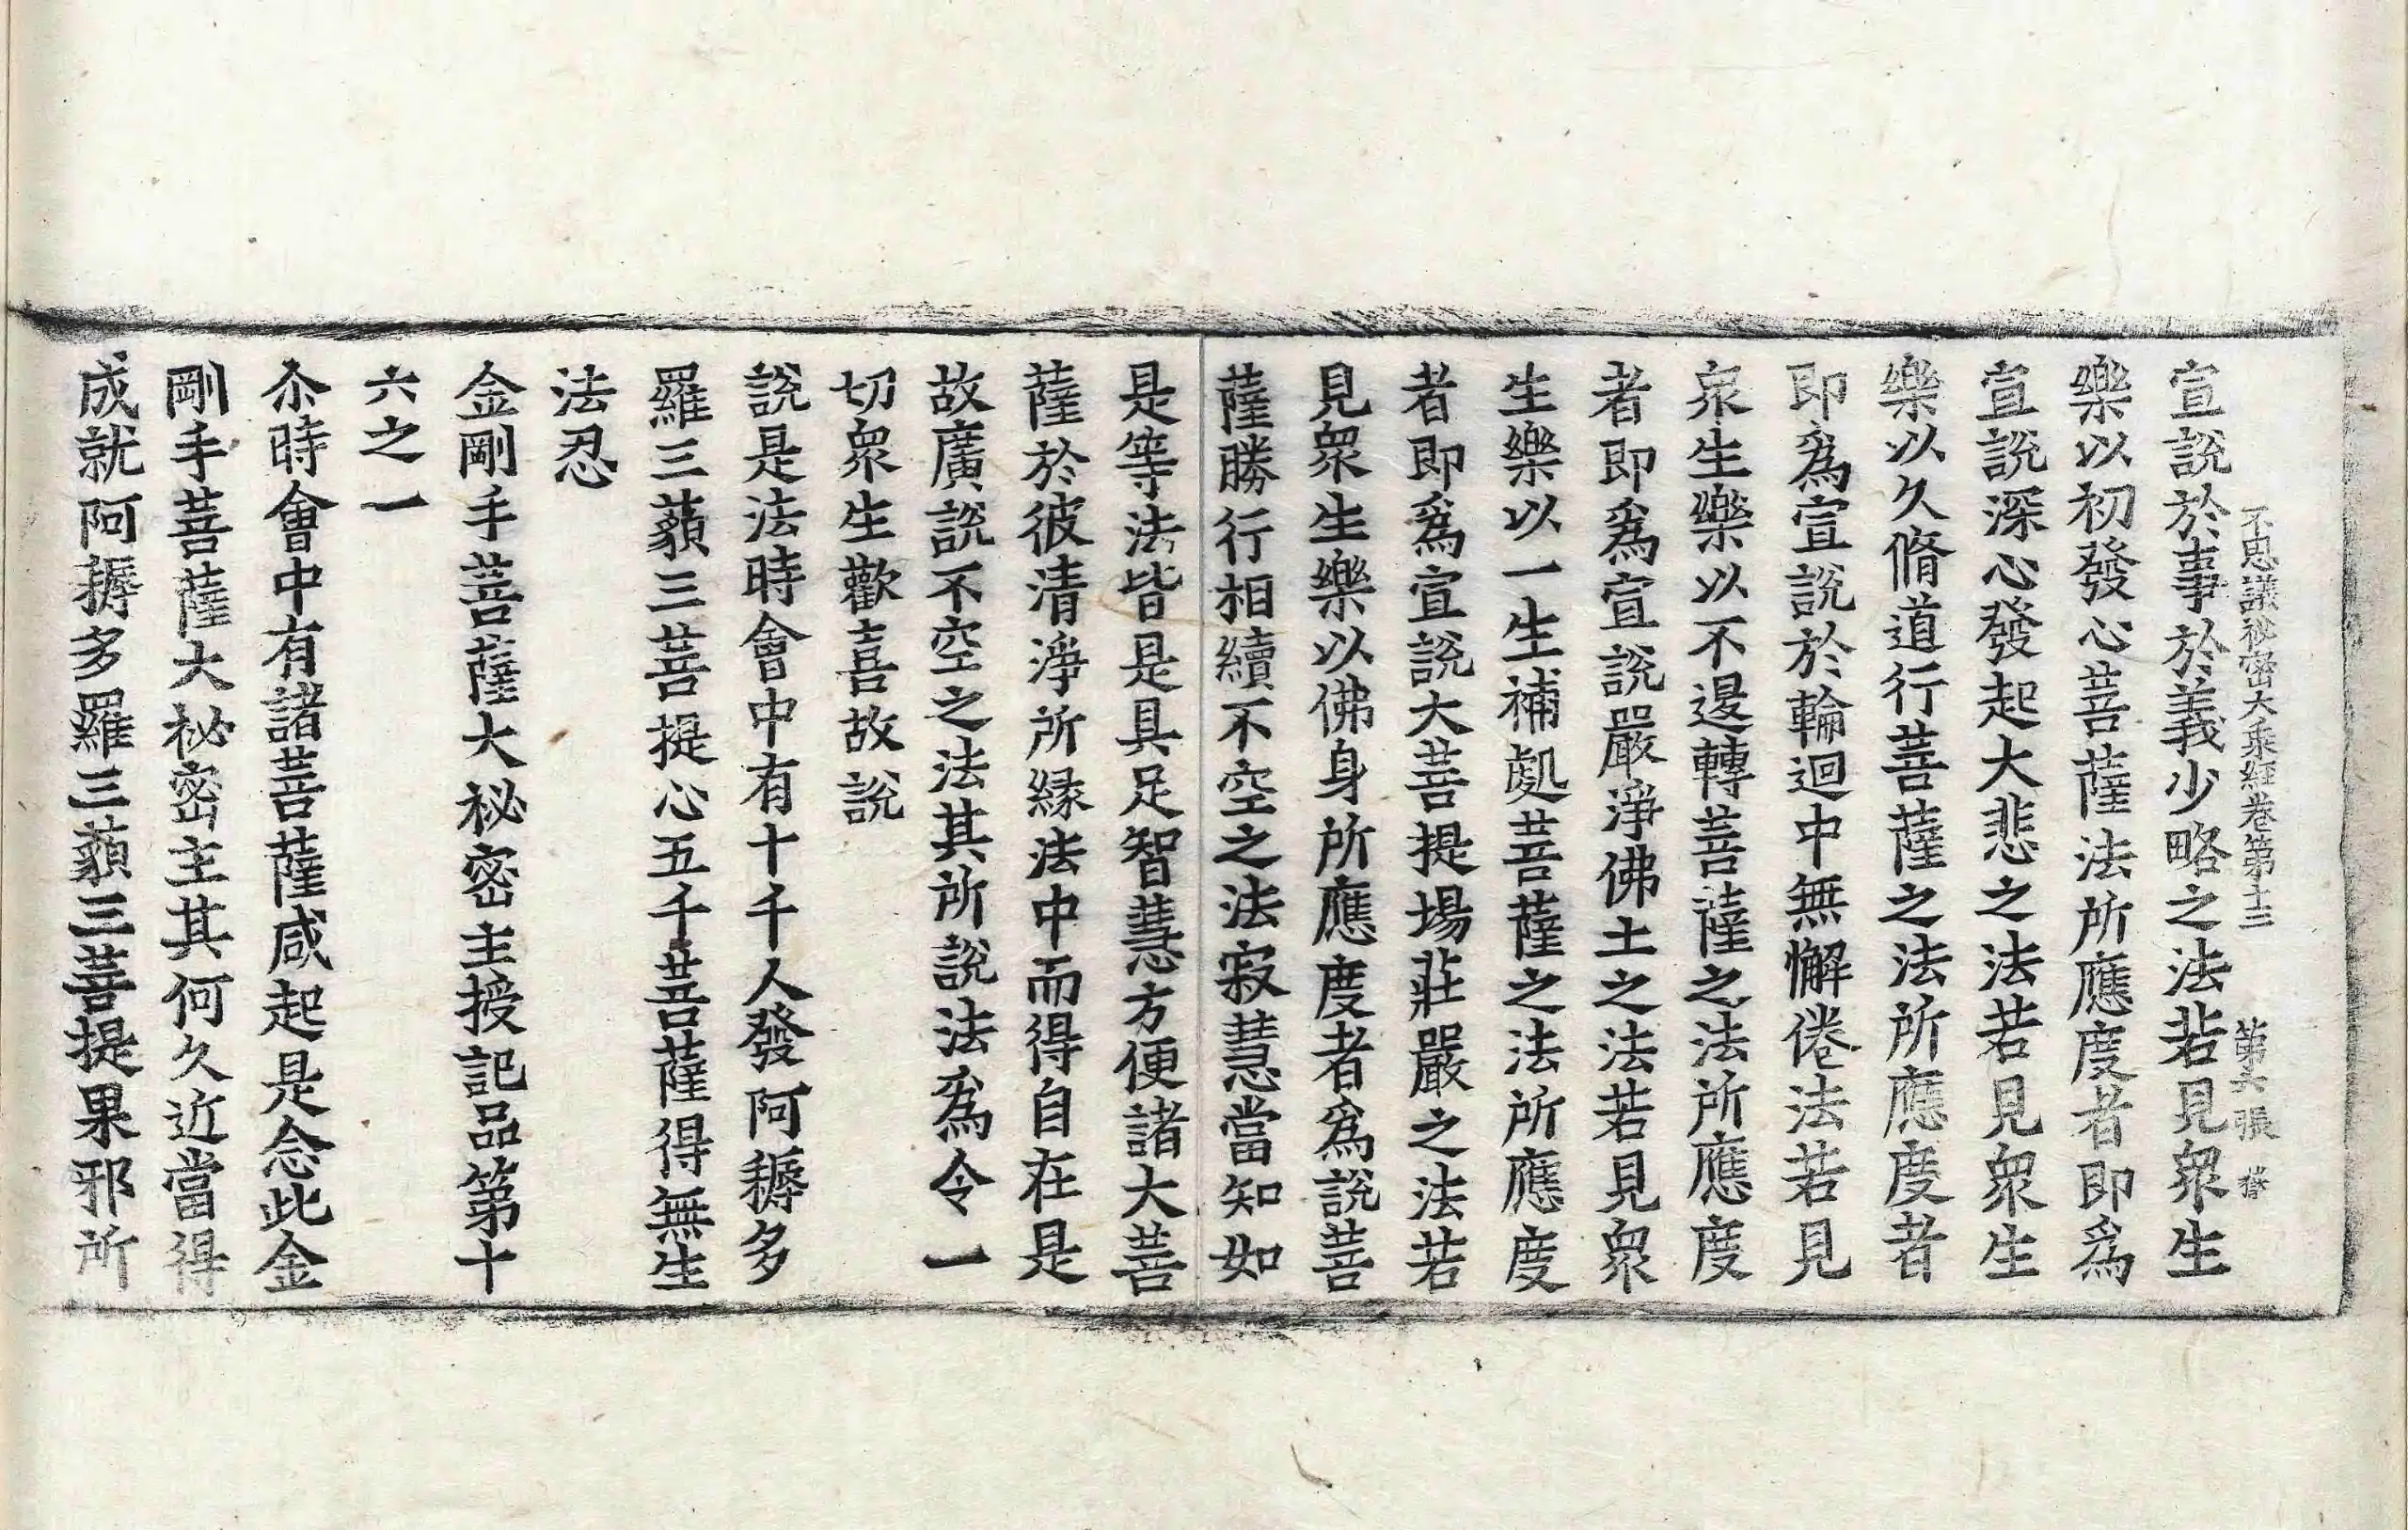 不思議祕密大乘經卷第十三 第六張
宣說於事於義少略之法若見衆生
樂以初發心菩薩法所應度者即爲
宣說深心發起大悲之法若見衆生
樂以久脩道行菩薩之法所應度者
即爲宣說於輪迴中無懈倦法若見
衆生樂以不退轉菩薩之法所應度
者即爲宣說嚴淨佛土之法若見衆
生樂以一生補處菩薩之法所應度
者即爲宣說大菩提場莊嚴之法若
見衆生樂以佛身所應度者爲說菩
薩勝行相續不空之法寂慧當知如
是等法皆是具足智慧方便諸大菩
薩於彼清淨所緣法中而得自在是
故廣說不空之法其所說法爲令一
切衆生歡喜故說
說是法時會中有十千人發阿耨多
羅三藐三菩提心五千菩薩得無生
法忍
金剛手菩薩大祕密主授記品第十
六之一
尒時會中有諸菩薩咸起是念此金
剛手菩薩大祕密主其何久近當得
成就阿耨多羅三藐三菩提果邪所